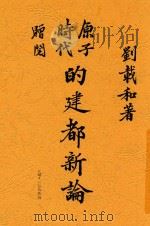 劉載和著
原子
時代
的建都新論
贈閱